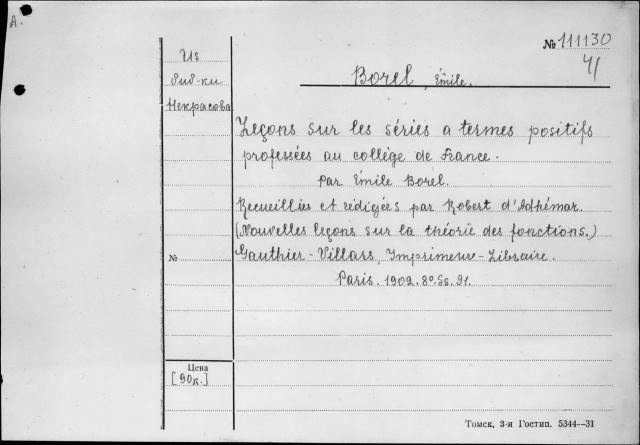 А.
№ 111130
41
Из
биб-ки
Некрасова
Borel, Émile.
Leçons sur les séries a termes positifs
professées au collège de France.
Par Émile Borel.
Recueillies et rédigées par Robert d'Adhémar.
(Nouvelles leçons sur la théorie des fonctions.)
№
Gauthier-Villars, Imprimeur-Libraire.
Paris. 1902. 8º. Ss. 91.
Цена
[90к.]
Томск, 3-я Гостип. 5344—31